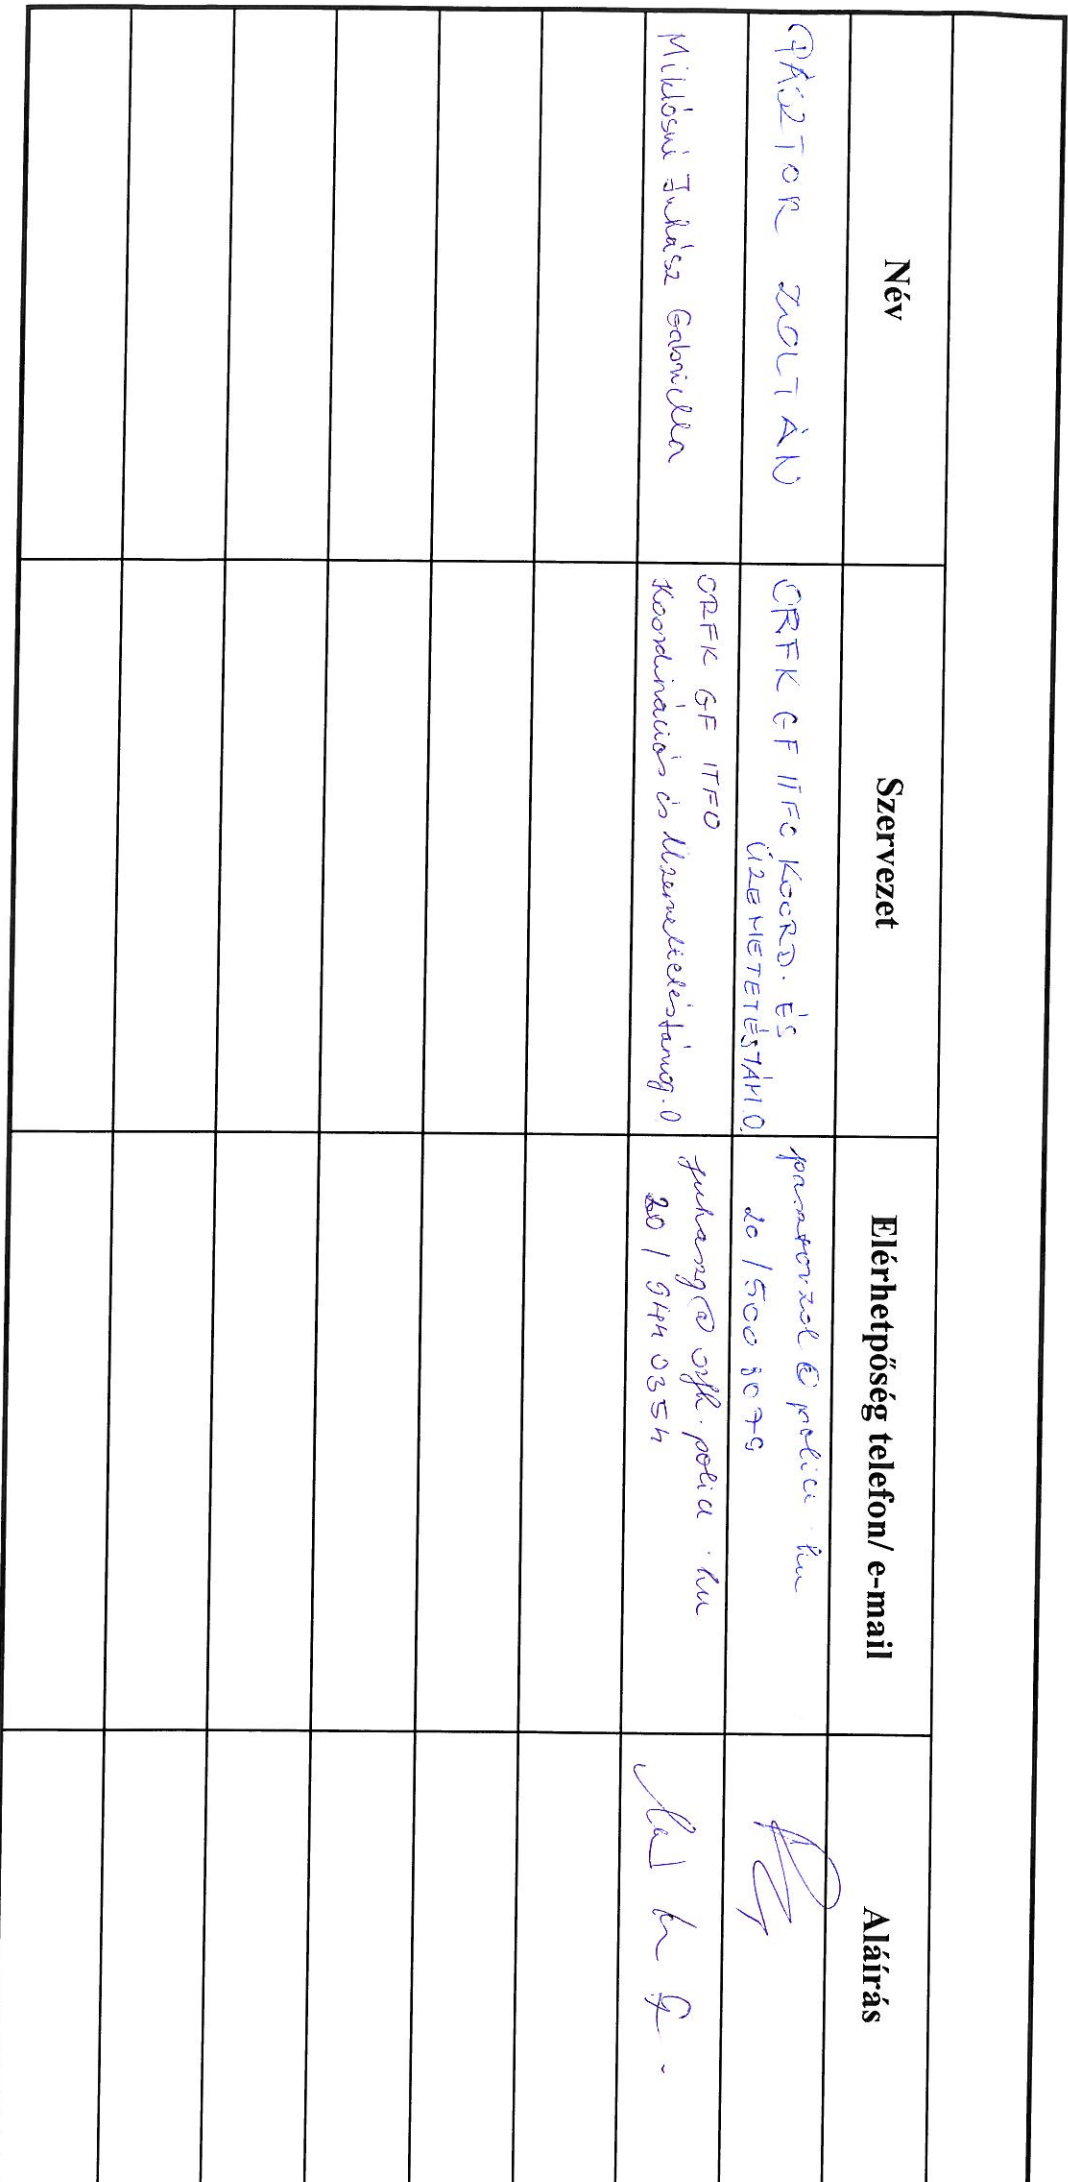 Név Szervezet Elérhetpőség telefon/ e-mail Aláírás
PÁSZTOR ZOLTÁN
ORFK GF ITFO KOORD. ÉS
ÜZEMETETÉSTÁM.O.
pasztorzol@police.hu
20/500 8079
Miklósné Juhász Gabriella
ORFK GF ITFO
Koordinációs és Üzemeltetéstámog. O
juhaszg@orfk.police.hu
20/944 0354